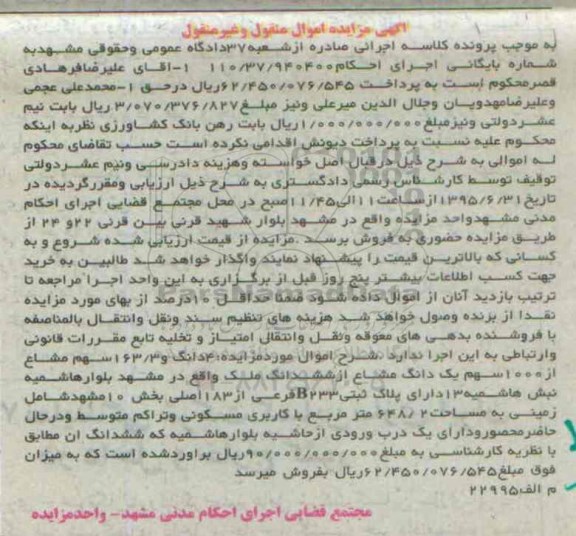 آگهی مزایده اموال منقول وغیرمنقول
به موجب پرونده کلاسه اجرائی صادره ازشعبه۳۷دادگاه عمومی وحقوقی مشهدبه
شماره بایگانی اجرای احکام۱۱۰/۳۷/۹۴۰۴۰۰ ۱-آقای علیرضافرهادی
قصرمحکوم است به پرداخت ۶۲/۴۵۰/۰۷۶/۵۴۵ریال درحق ۱-محمدعلی عجمی
وعلیرضامهدویان وجلال الدین میرعلی ونیز مبلغ۳/۰۷۰/۳۷۶/۸۲۷ ریال بابت نیم
عشردولتی ونیزمبلغ۱/۰۰۰/۰۰۰/۰۰۰ریال بابت رهن بانک کشاورزی نظربه اینکه
محکوم علیه نسبت به پرداخت دیونش اقدامی نکرده است حسب تقاضای محکوم
له اموالی به شرح ذیل درقبال اصل خواسته وهزینه دادرسی ونیم عشردولتی
توقیف توسط کارشناس رسمی دادگستری به شرح ذیل ارزیابی ومقررگردیده در
تاریخ ۱۳۹۵/۶/۳۱ازساعت۱۱الی۱۱/۴۵صبح در محل مجتمع قضایی اجرای احکام
مدنی مشهدواحد مزایده واقع در مشهد بلوار شهید قرنی بین قرنی ۲۲و ۲۴ از
طریق مزایده حضوری به فروش برسد .مزایده از قیمت ارزیابی شده شروع و به
کسانی که بالاترین قیمت را پیشنهاد نمایند واگذار خواهد شد طالبین به خرید
جهت کسب اطلاعات بیشتر پنج روز قبل از برگزاری به این واحد اجرا مراجعه تا
ترتیب بازدید آنان از اموال داده شود ضمنا حداقل ۱۰درصد از بهای مورد مزایده
نقدا از برنده وصول خواهد شد هزینه های تنظیم سند ونقل وانتقال بالمناصفه
با فروشنده بدهی های معوقه ونقل وانتقال امتیاز و تخلیه تابع مقررات قانونی
وارتباطی به این اجرا ندارد .شرح اموال موردمزایده:۴دانگ و۱۶۳/۳سهم مشاع
از۱۰۰۰سهم یک دانگ مشاع ازششدانگ ملک واقع در مشهد بلوارهاشمیه
نبش هاشمیه۱۳دارای پلاک ثبتی۲۳۳Bفرعی از۱۸۳اصلی بخش ۱۰مشهدشامل
زمینی به مساحت۶۴۸/۲ متر مربع با کاربری مسکونی وتراکم متوسط ودرحال
حاضرمحصورودارای یک درب ورودی ازحاشیه بلوارهاشمیه که ششدانگ ان مطابق
با نظریه کارشناسی به مبلغ۹۰/۰۰۰/۰۰۰/۰۰۰ریال براوردشده است که به میزان
فوق مبلغ۶۲/۴۵۰/۰۷۶/۵۴۵ریال بفروش میرسد
م الف۲۲۹۹۵
مجتمع قضایی اجرای احکام مدنی مشهد- واحدمزایده